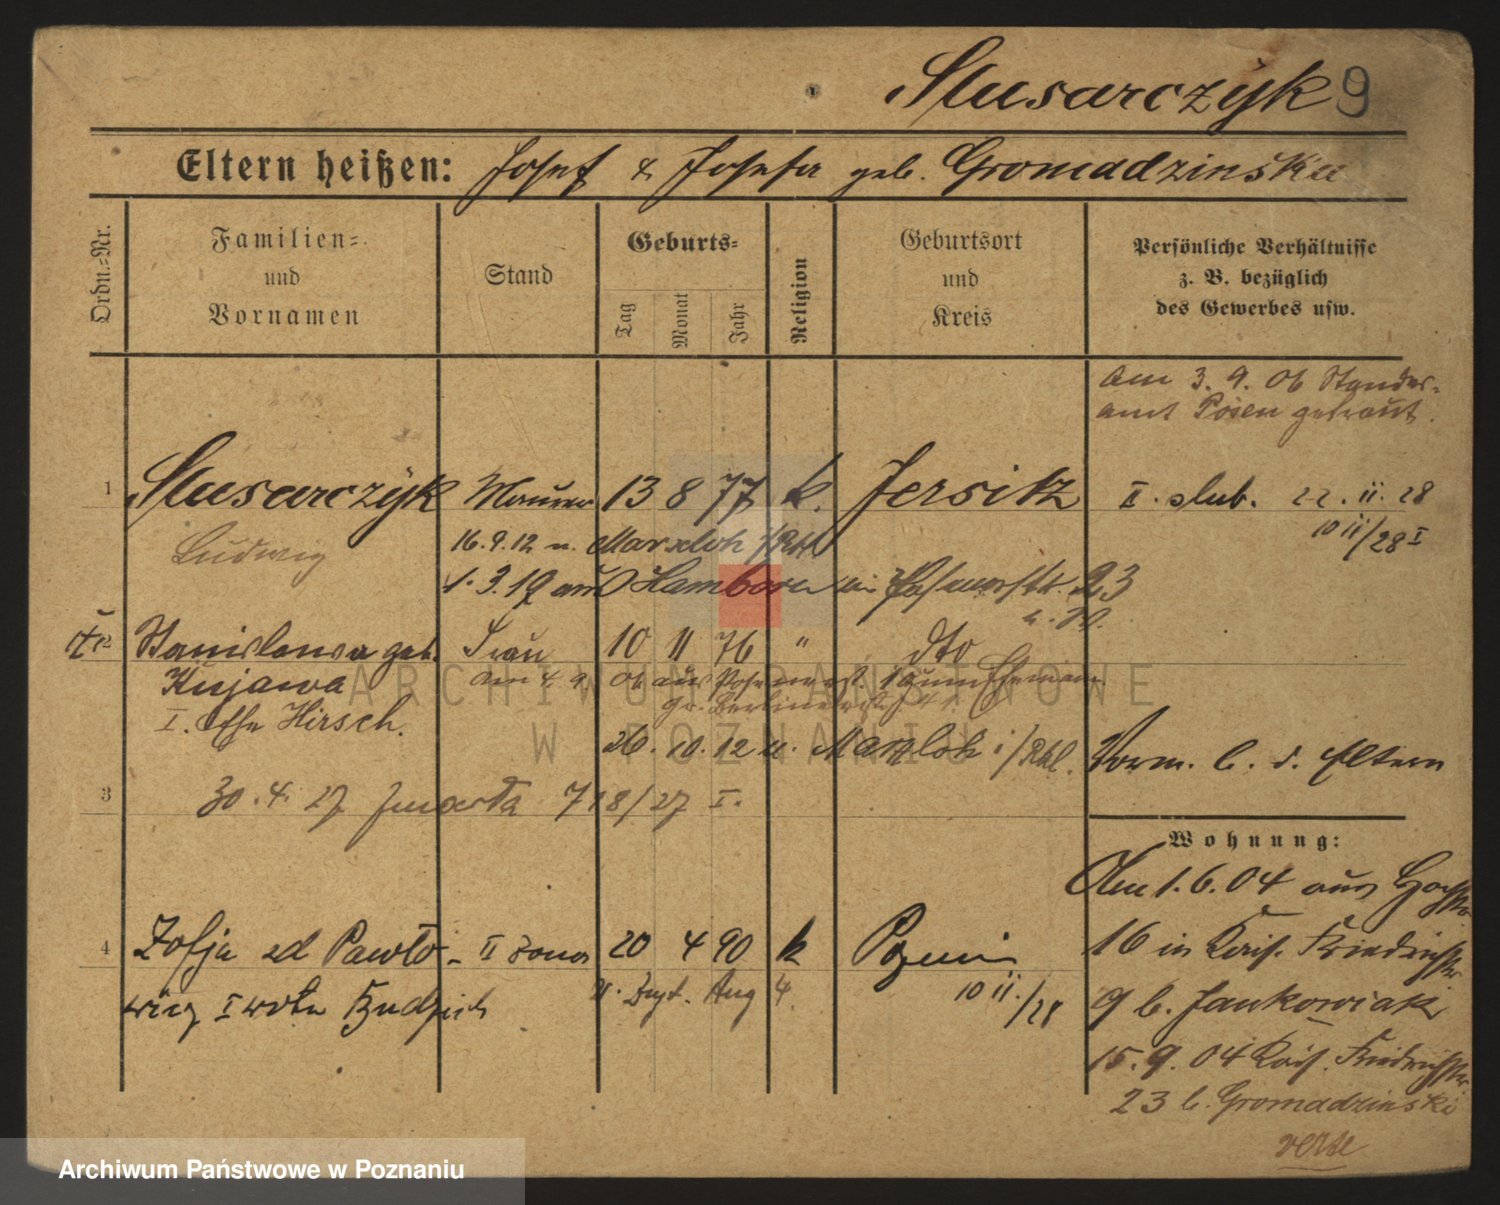 Slusarczyk 9
Eltern heißen: Josef & Josefa geb. Gromadzinska
Ordn.-Nr.
Familien- und Vornamen
Stand
Geburts-
Tag
Monat
Jahr
Religion
Geburtsort und Kreis
Persönliche Verhältnisse
z. B. bezüglich
des Gewerbes usw.
Am 3. 9. 06 Standes-
amt Posen getraut.
1 Slusarczyk Maurer 13 8 77 k. Jersitz II. slub. 22. II. 28
10 II/28 I
Ludwig
16.9.12 n. Marxloh /Rhl
1.3.19 aus Hamborn in 23
2 Stanislawa geb. Frau 10 11 76 " dto
Kujawa Am 4. 9. 06 aus zum Ehemann
I. Ehe Hirsch. gr. Berlinerstr.
26. 10. 12 n. Marxloh i/Rhl. Vorm. b. d. Eltern
3 30. 4. 27 zmarła 718/27 I.
Wohnung:
Am 1. 6. 04 aus
4 Zofja zd Pawło- II żona 20 4 90 k Poznań 16 in Kais. Friedrichstr
wicz I voto 10 II./28 9 b. Jankowiak
15. 9. 04 Kais. Friedrichstr
23 b. Gromadzinski
verte
ARCHIWUM PAŃSTWOWE
W POZNANIU
Archiwum Państwowe w Poznaniu